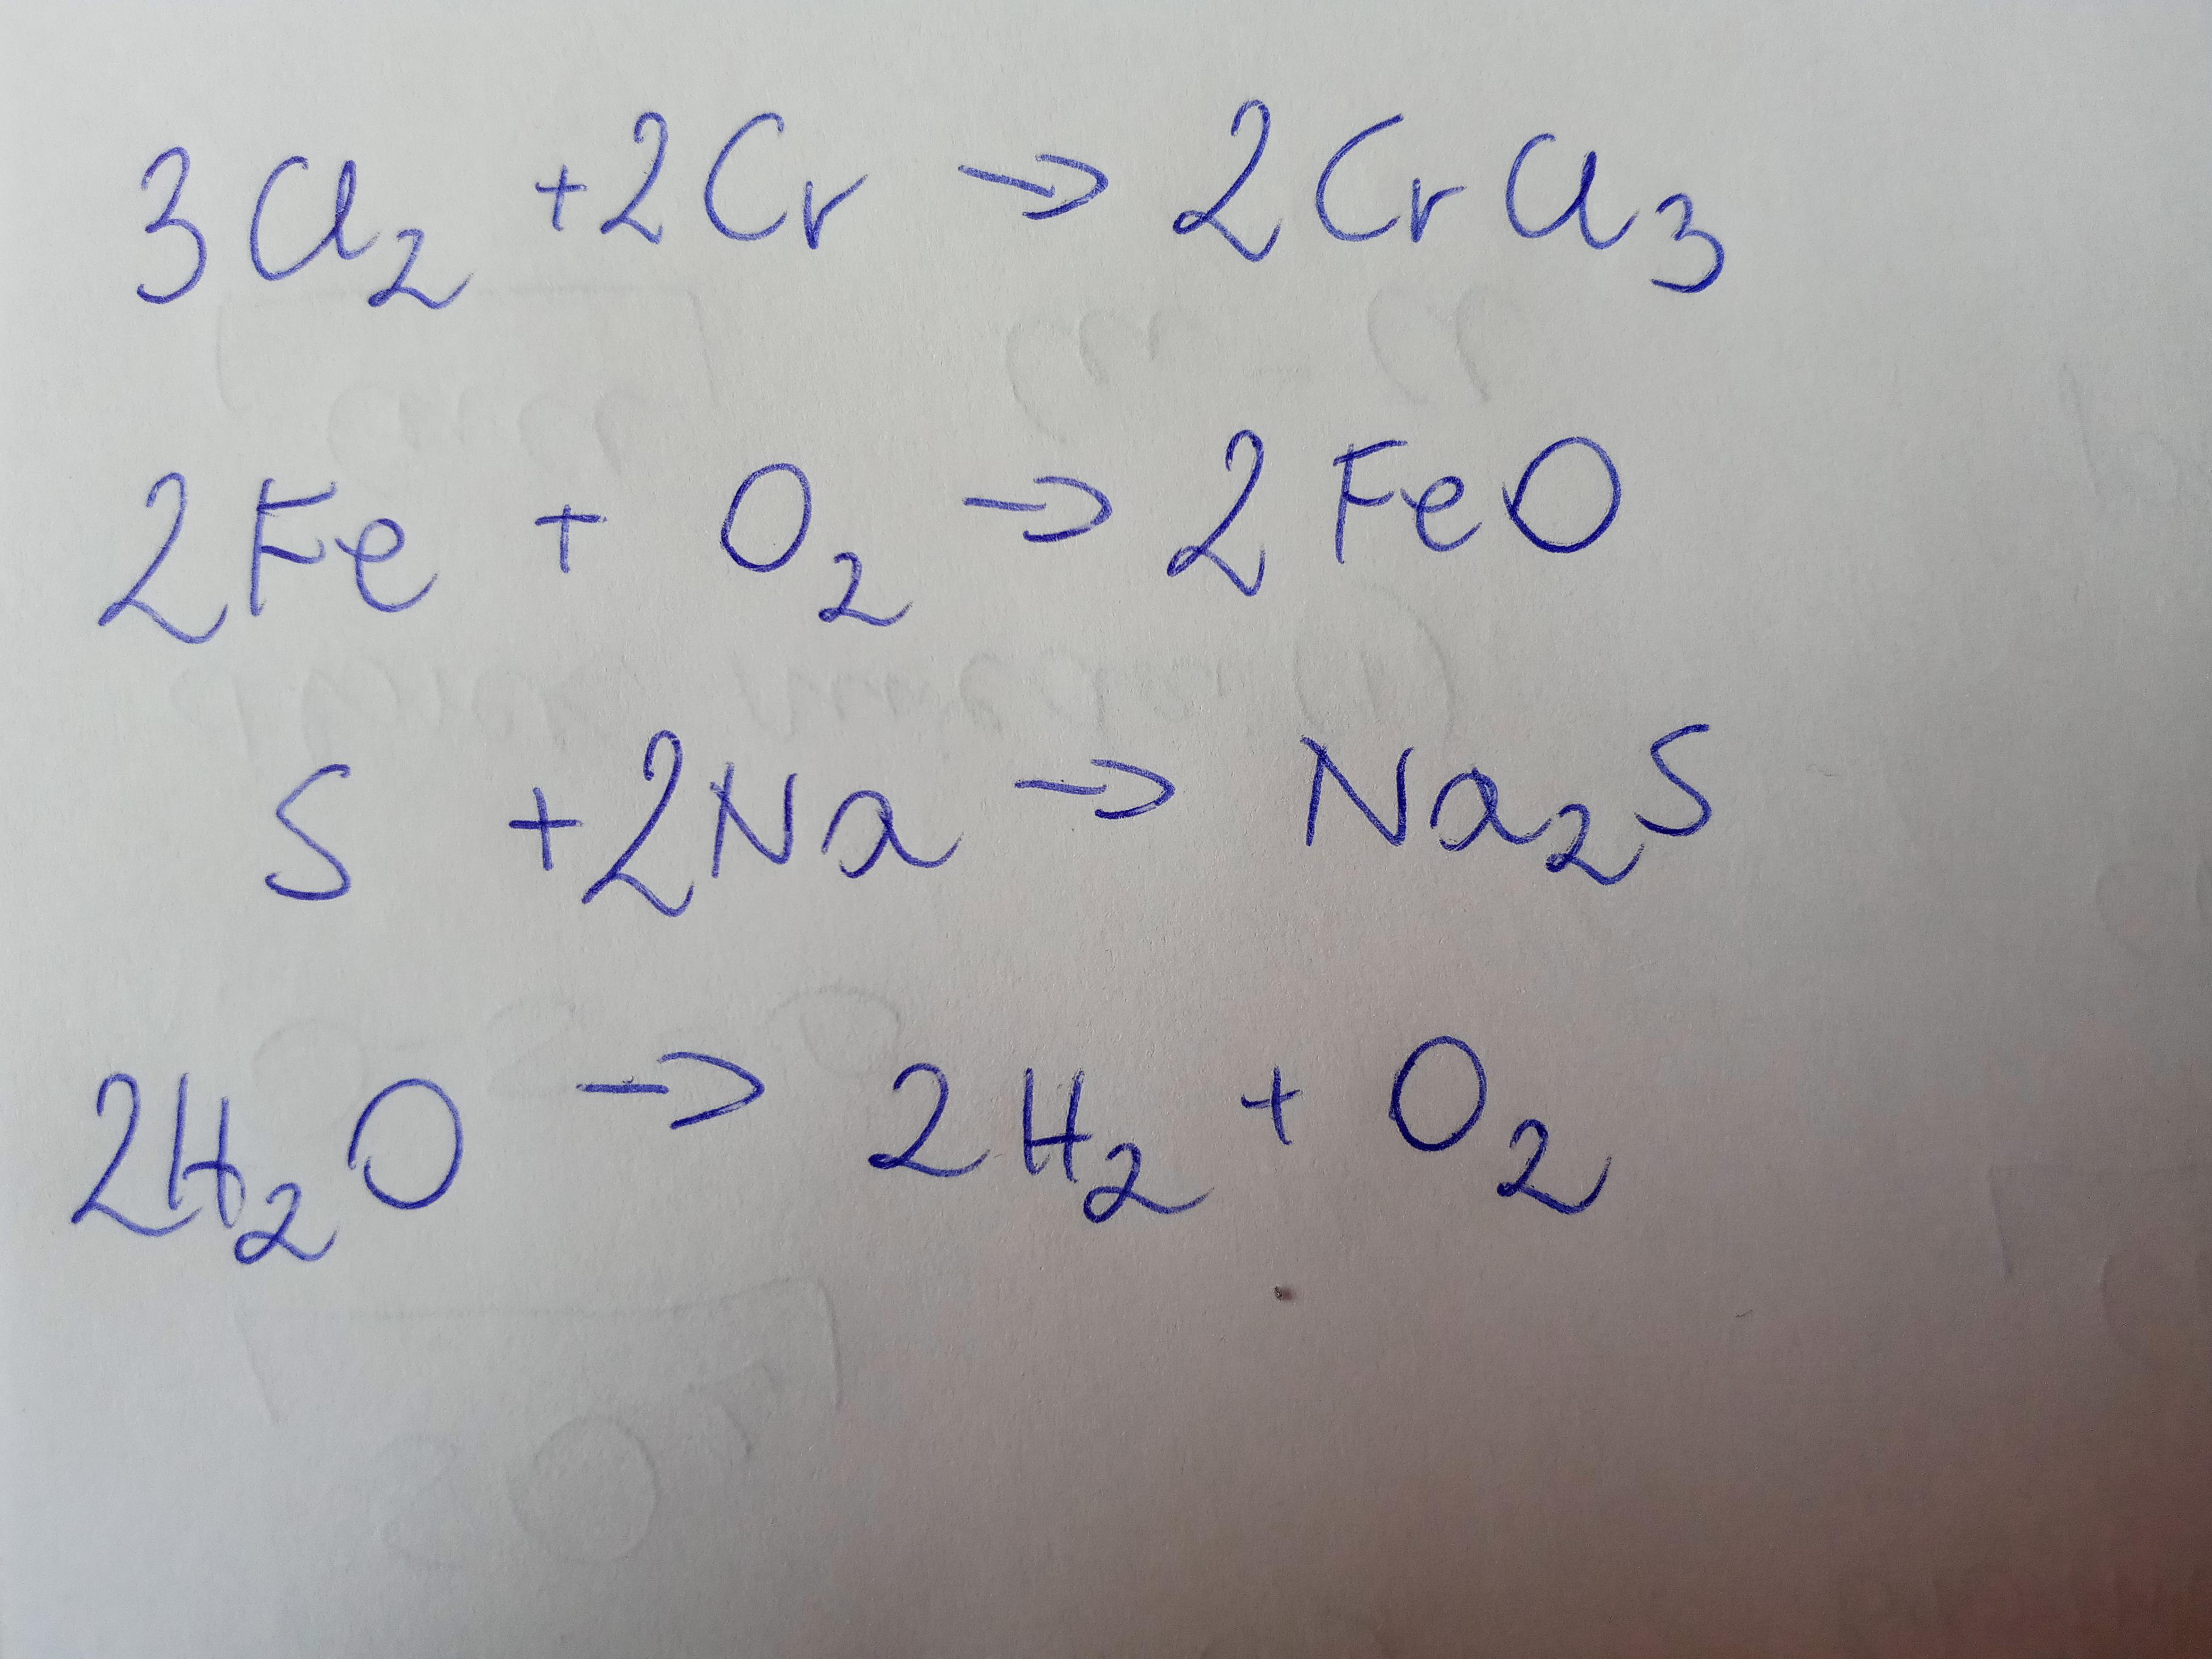 3Cl₂ + 2Cr → 2CrCl₃
2Fe + O₂ → 2FeO
S + 2Na → Na₂S
2H₂O → 2H₂ + O₂